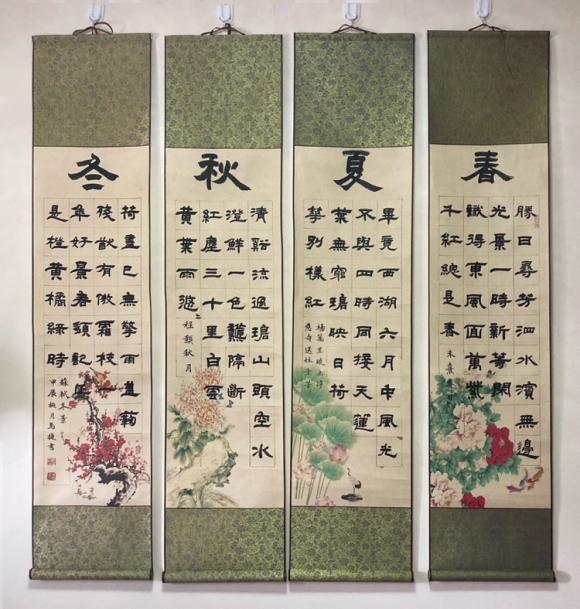 春
勝日尋芳泗水濱無邊
光景一時新等閒
識得東風面萬紫
千紅總是春
朱熹
夏
畢竟西湖六月中風光
不與四時同接天蓮
葉無窮碧映日荷
華別樣紅
楊萬里曉出淨
慈寺送林子
秋
清谿流過碧山頭空水
澄鮮一色龝隔斷
紅塵三十里白雲
黃葉兩悠二
程顥秋月
冬
荷盡已無擎雨蓋菊
殘猶有傲霜枝一
年好景君須記最
是橙黃橘綠時
蘇軾冬景
甲辰桃月馬捷書